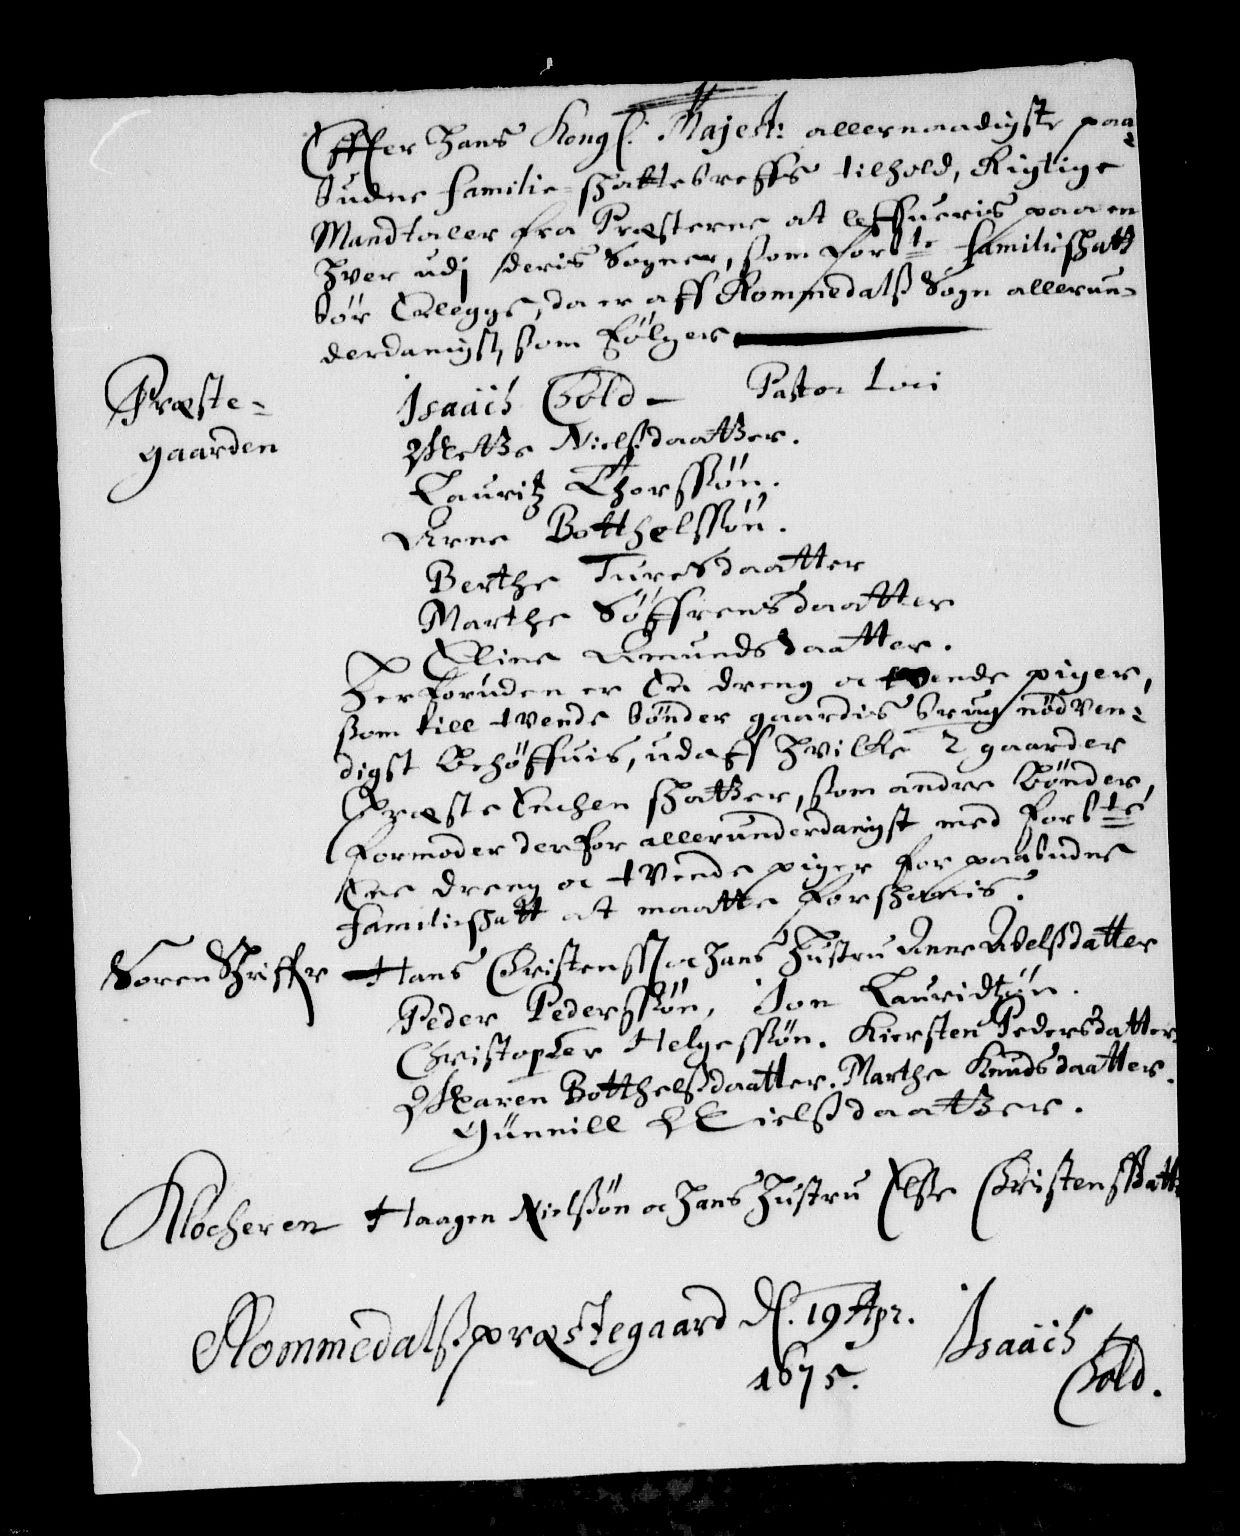 Effter Hans Kongl: Majest: allernaadigste paa-
budne familie-skattebreffs tilhold, Rigtige
Mandtaler fra Præsterne at leffueris paa en
hver udj deris Sogner, som forbte familieskatt
bør Erlegge, da er aff Rommedals Sogn allerun-
derdanigst, som følger
Præste-
gaarden
Isaach Cold - Pastor Loci
Mette Nielsdaatter.
Lauritz Thorssøn.
Arne Botthelssøn.
Berthe Turesdaatter
Marthe Søffrensdaatter
Eline Amundsdaatter.
Herforuden er En dreng oc tvende piger,
som till tvende bønder gaardis brug nødven-
digst Behøffuis, udaff hvilke 2 gaarder
Præste Enchen skatter, som andre Bønder,
formoder derfor allerunderdanigst med forbte
Ene dreng oc tvende piger for paabudne
familieskatt at maatte forskaanis.
Soren Skriffr Hans Christenss. oc hans hustru Anne Adelsdatter
Peder Pederssøn, Jon Lauridtzøn.
Christopher Helgessøn. Kiersten Pedersdatter.
Maren Botthelsdaatter. Marthe Knudsdaatter.
Gunnill Nielsdaatter.
Klocheren Haagen Nielsøn oc hans hustru Else Christensdatt:
Rommedals præstegaard d. 19 Apr. Isaach
1675. Cold.